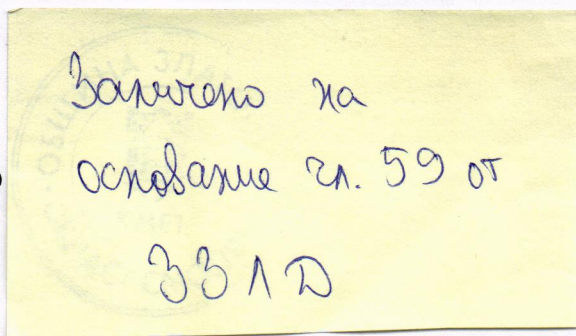 Заличено на
основание чл. 59 от
ЗЗЛД